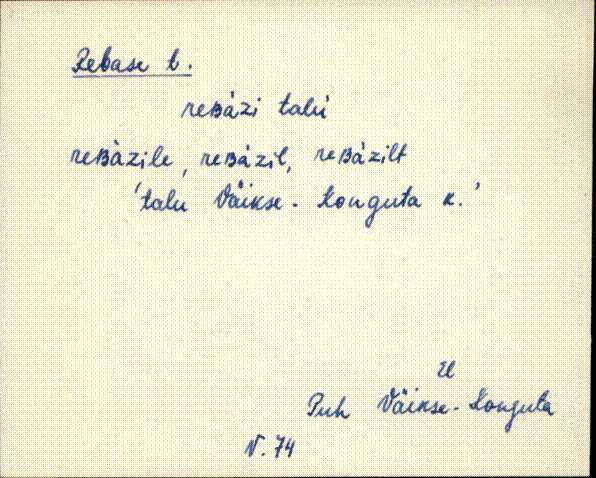 Rebase t.
reʙàzi talù
reʙàzile, reʙàzil, reʙàzilt
'talu Väikse-Konguta k.'
El
Puh Väikse-Konguta
V. 74